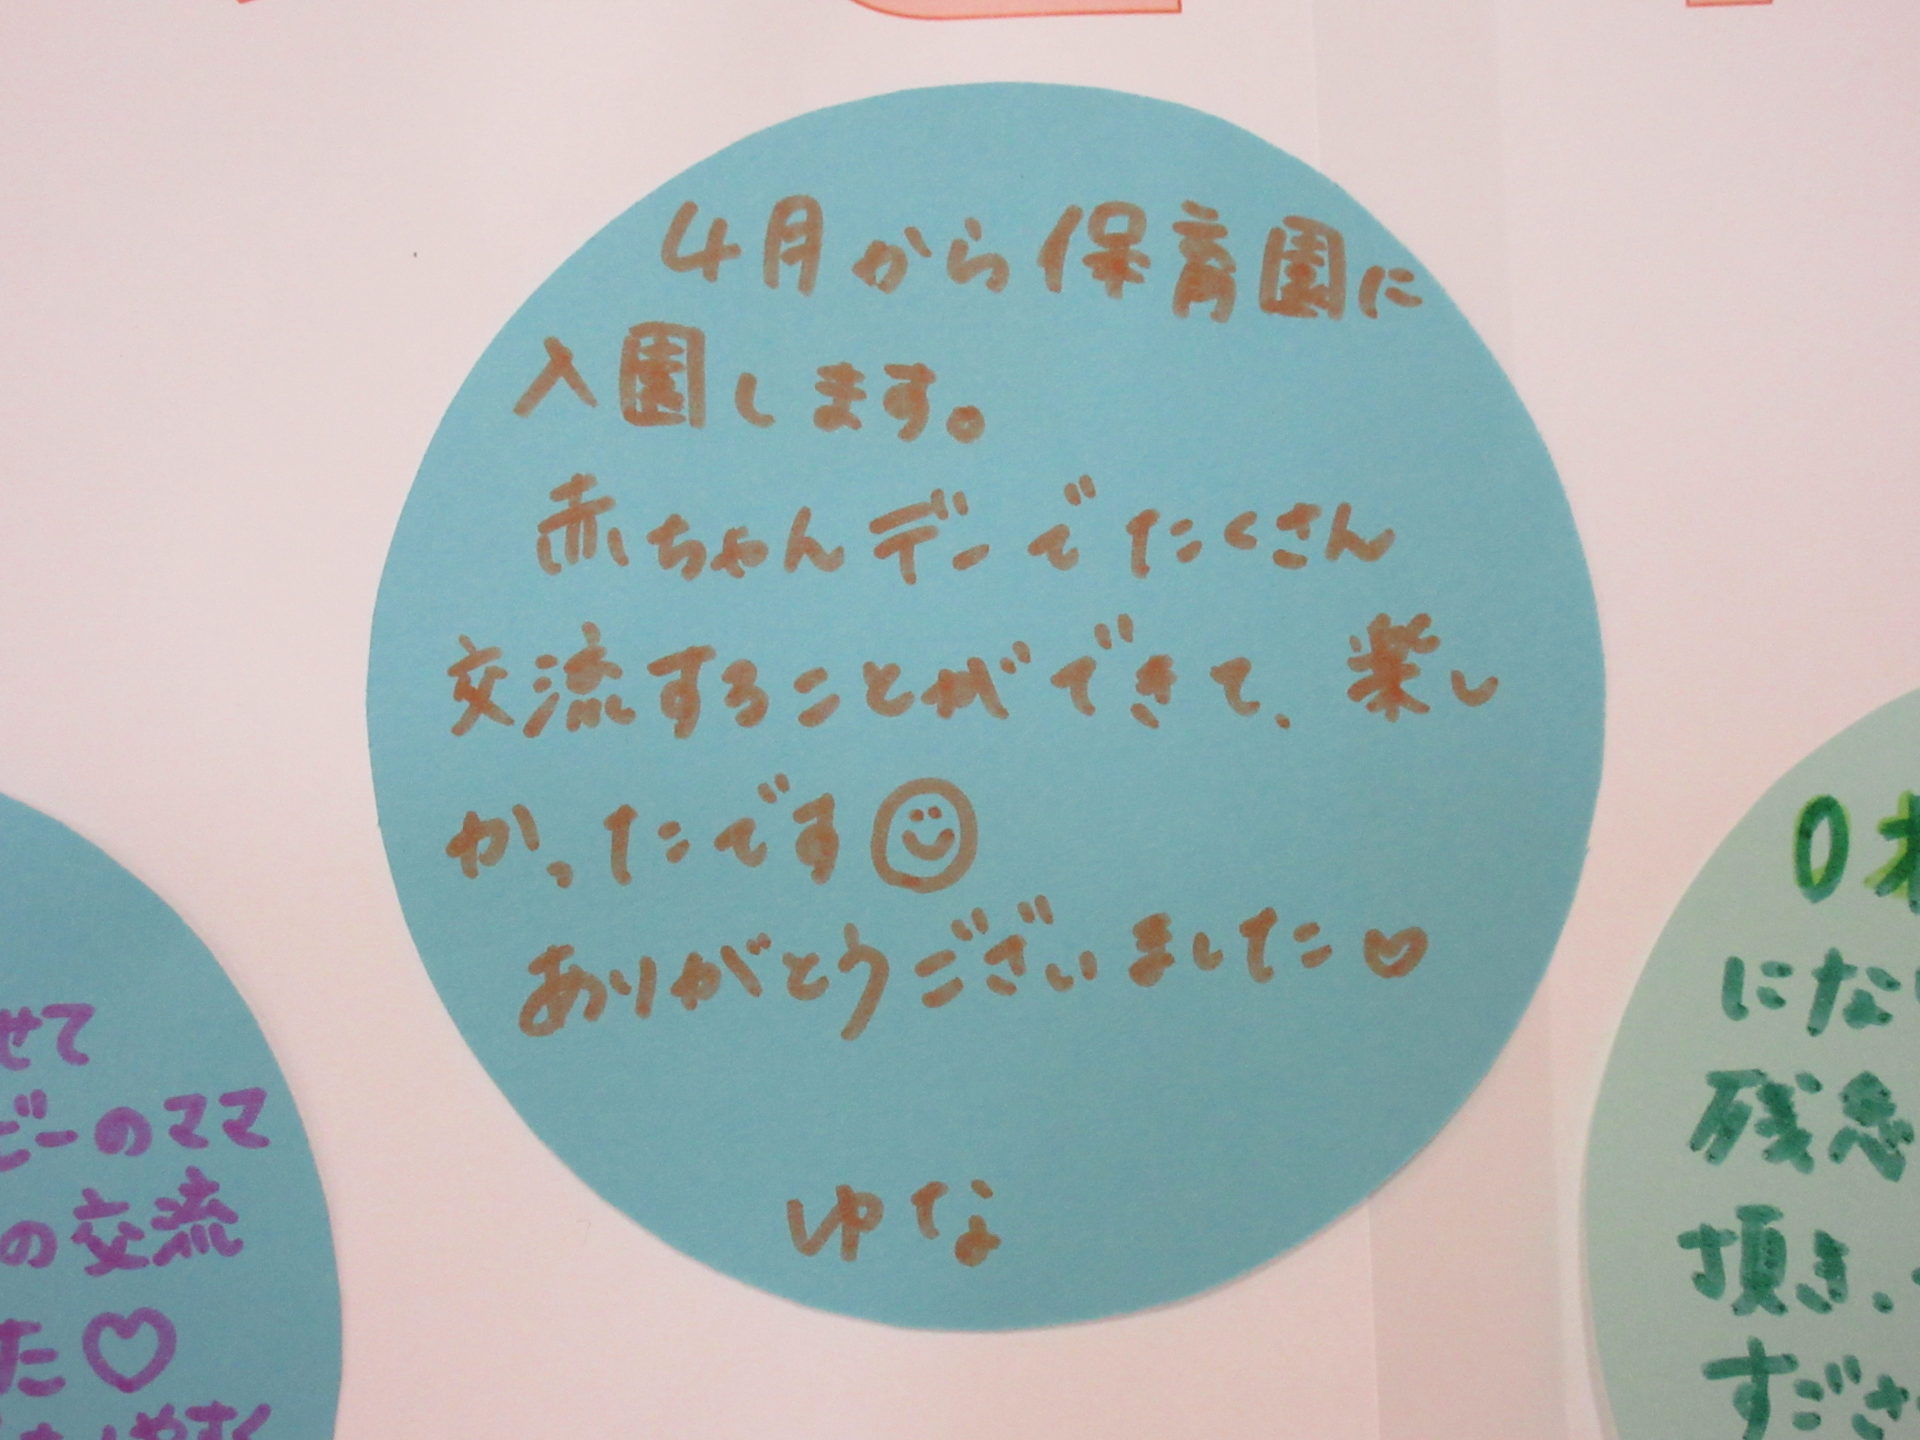 4月から保育園に
入園します。
赤ちゃんデーでたくさん
交流することができて、楽し
かったです
ありがとうございました♡
ゆな
せて
ビーのママ
の交流
た♡
やすく
0才
にな
残念
頂き、
すごさ